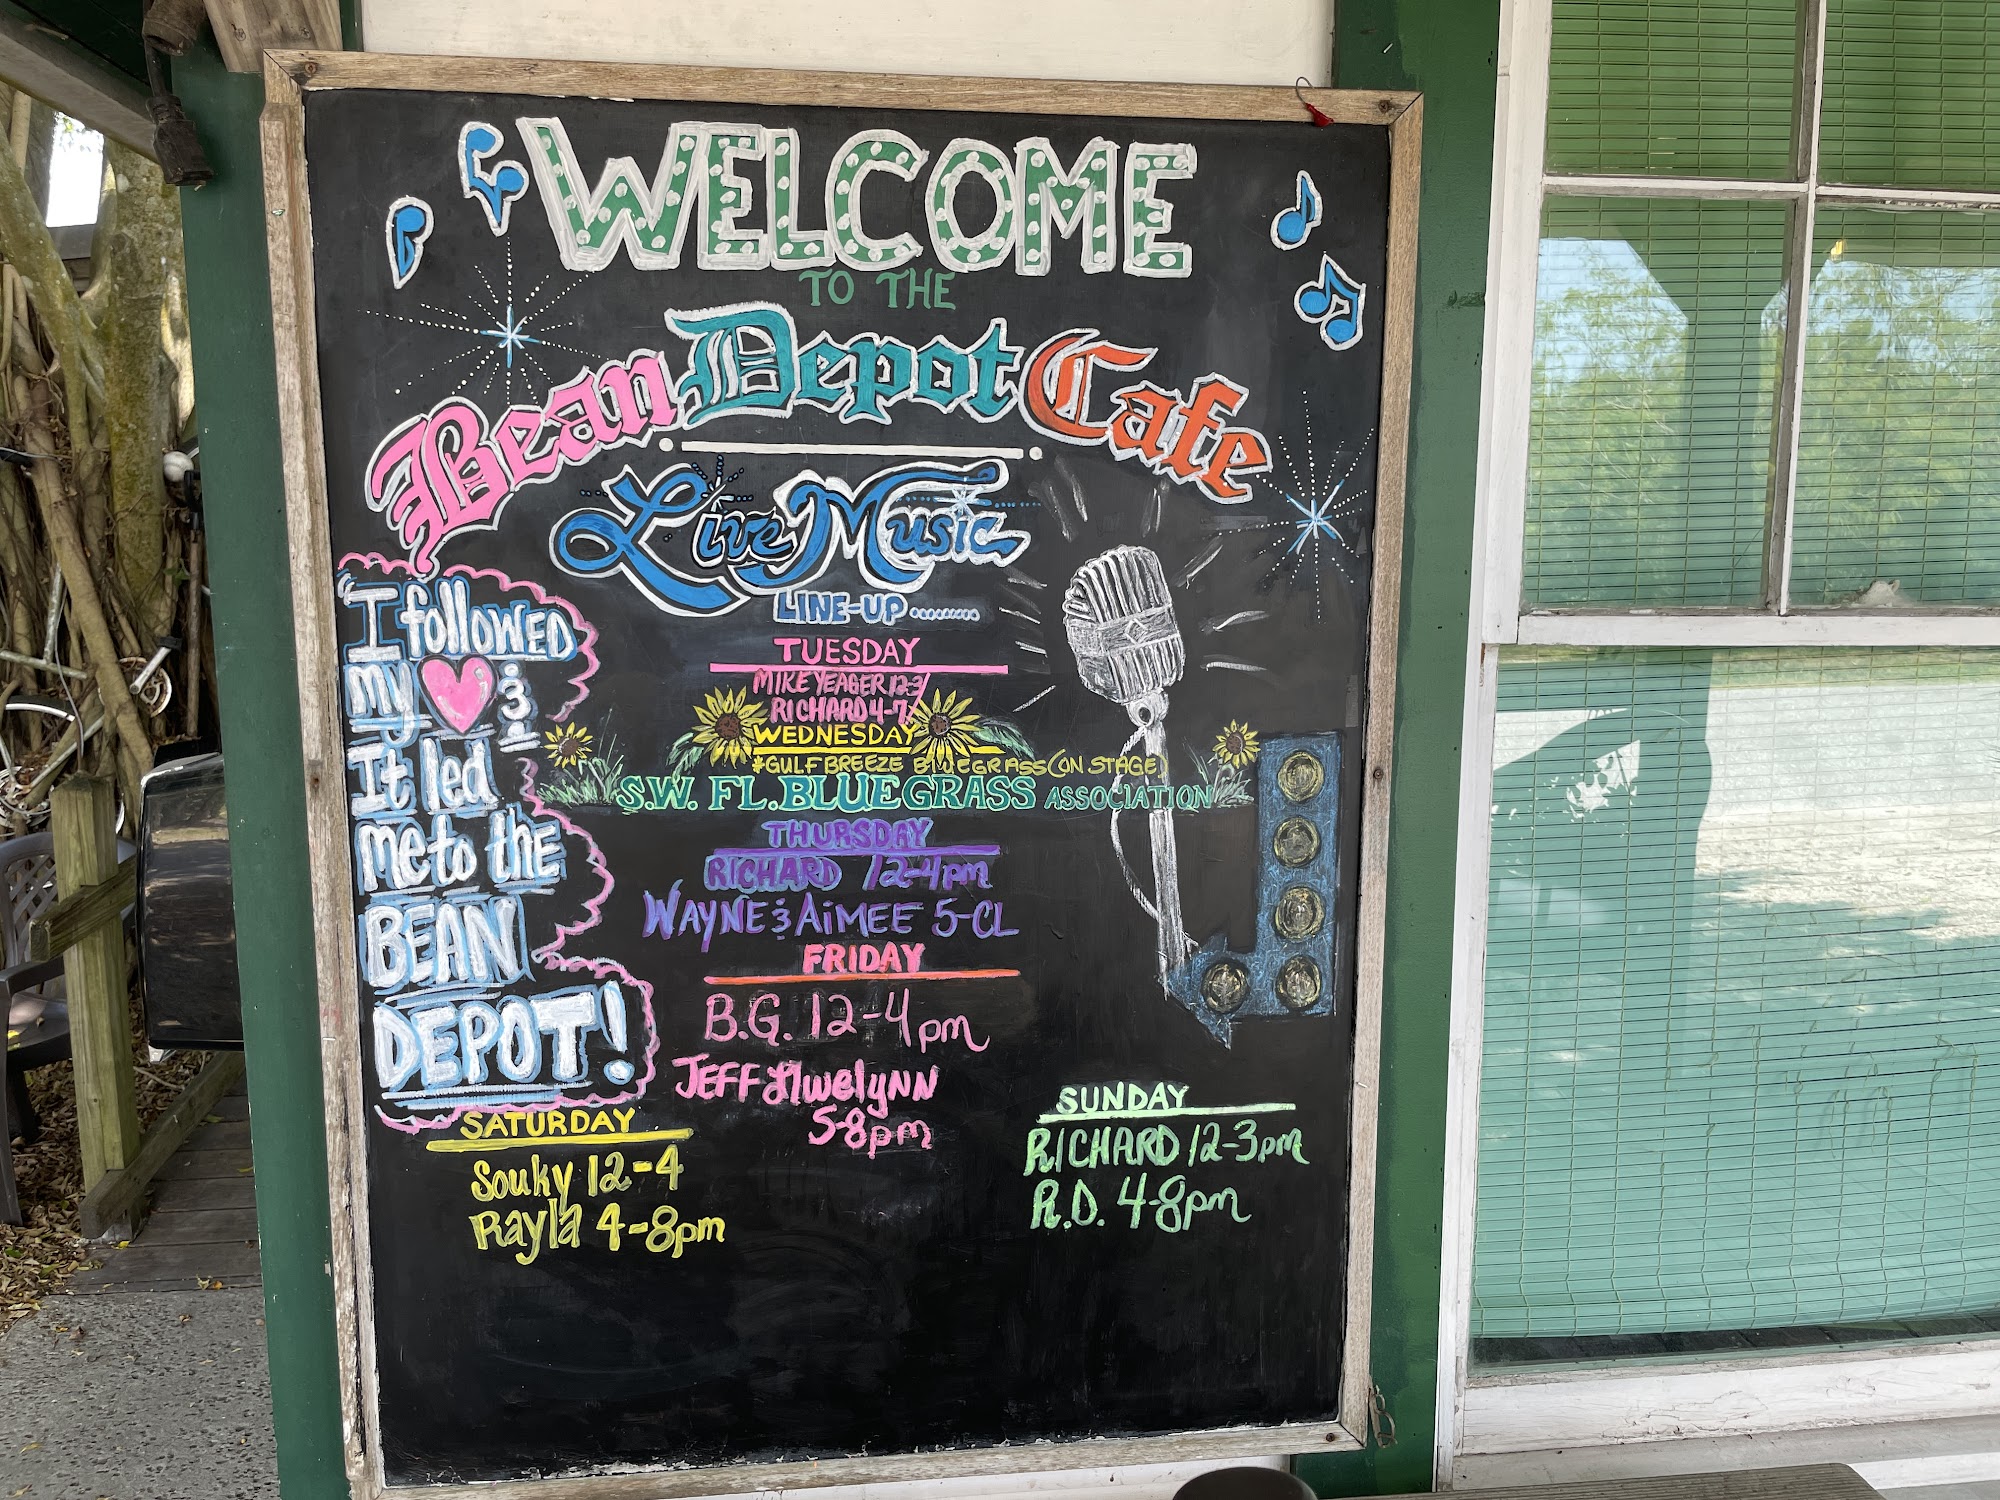 WELCOME
TO THE
Bean Depot Cafe
Live Music
LINE-UP..........
I followed
my &
It led
me to the
BEAN
DEPOT!
TUESDAY
MIKE YEAGER 12-3
RICHARD 4-7
WEDNESDAY
*GULF BREEZE BLUEGRASS (ON STAGE)
S.W. FL. BLUEGRASS ASSOCIATION
THURSDAY
RICHARD 12-4pm
WAYNE & AiMEE 5-CL
FRIDAY
B.G. 12-4pm
JEFF Llwelynn
5-8pm
SATURDAY
Souky 12-4
Rayla 4-8pm
SUNDAY
RICHARD 12-3pm
R.D. 4-8pm